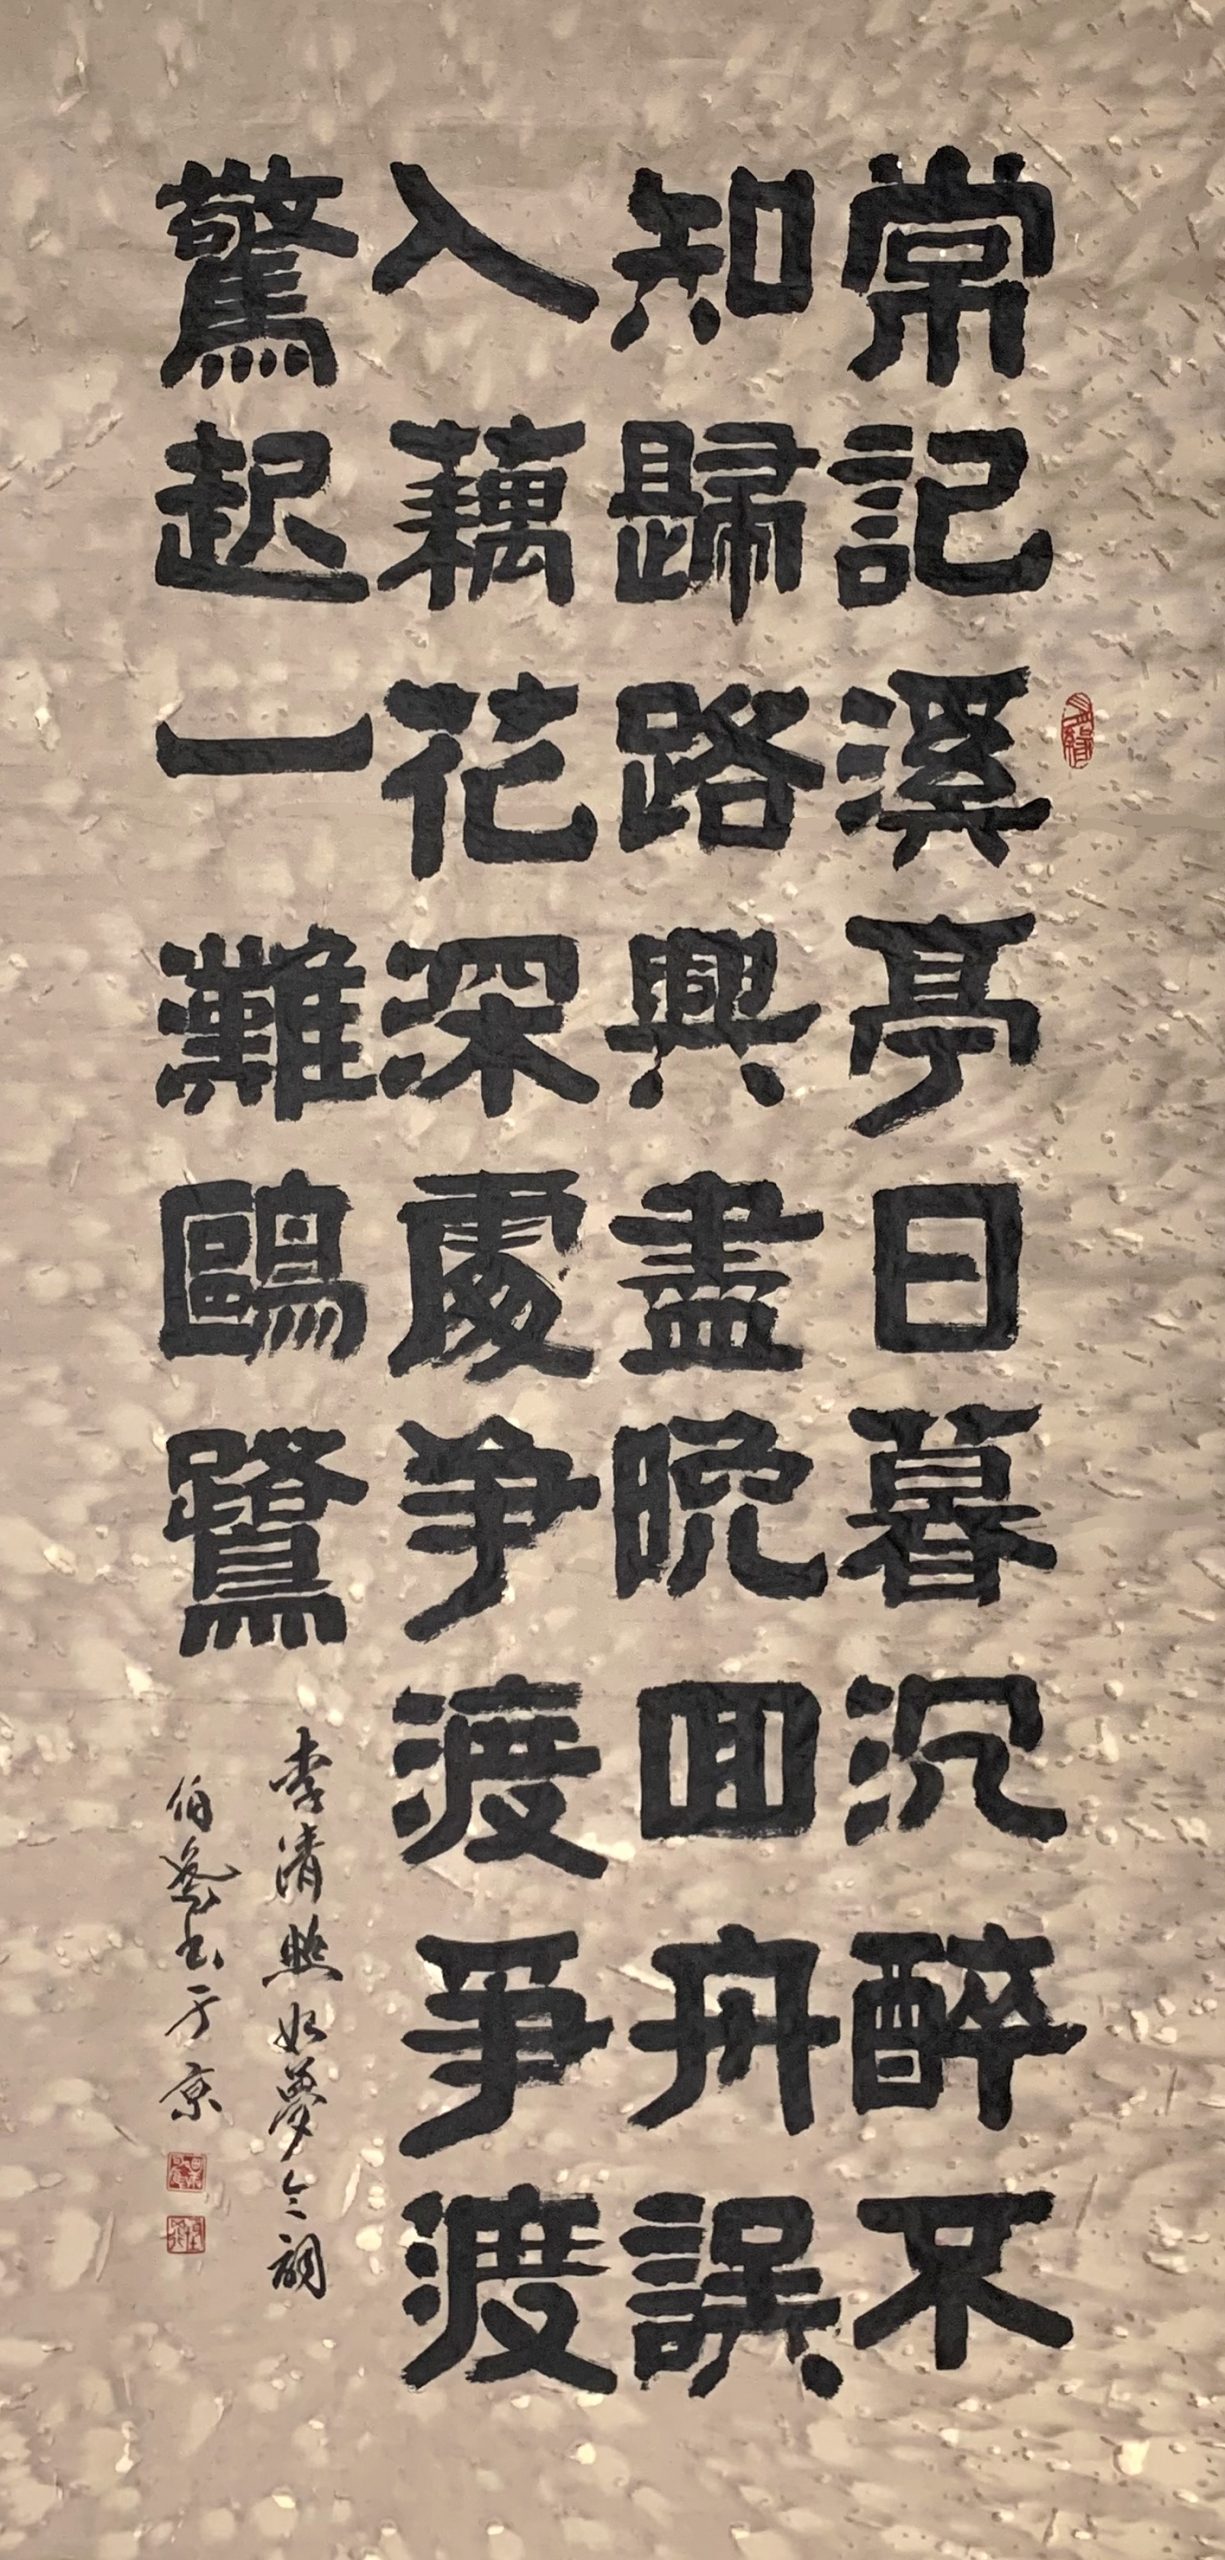 常記溪亭日暮沉醉不
知歸路興盡晚回舟誤
入藕花深處爭渡爭渡
驚起一灘鷗鷺
李清照如夢令詞
伯鑾書于京